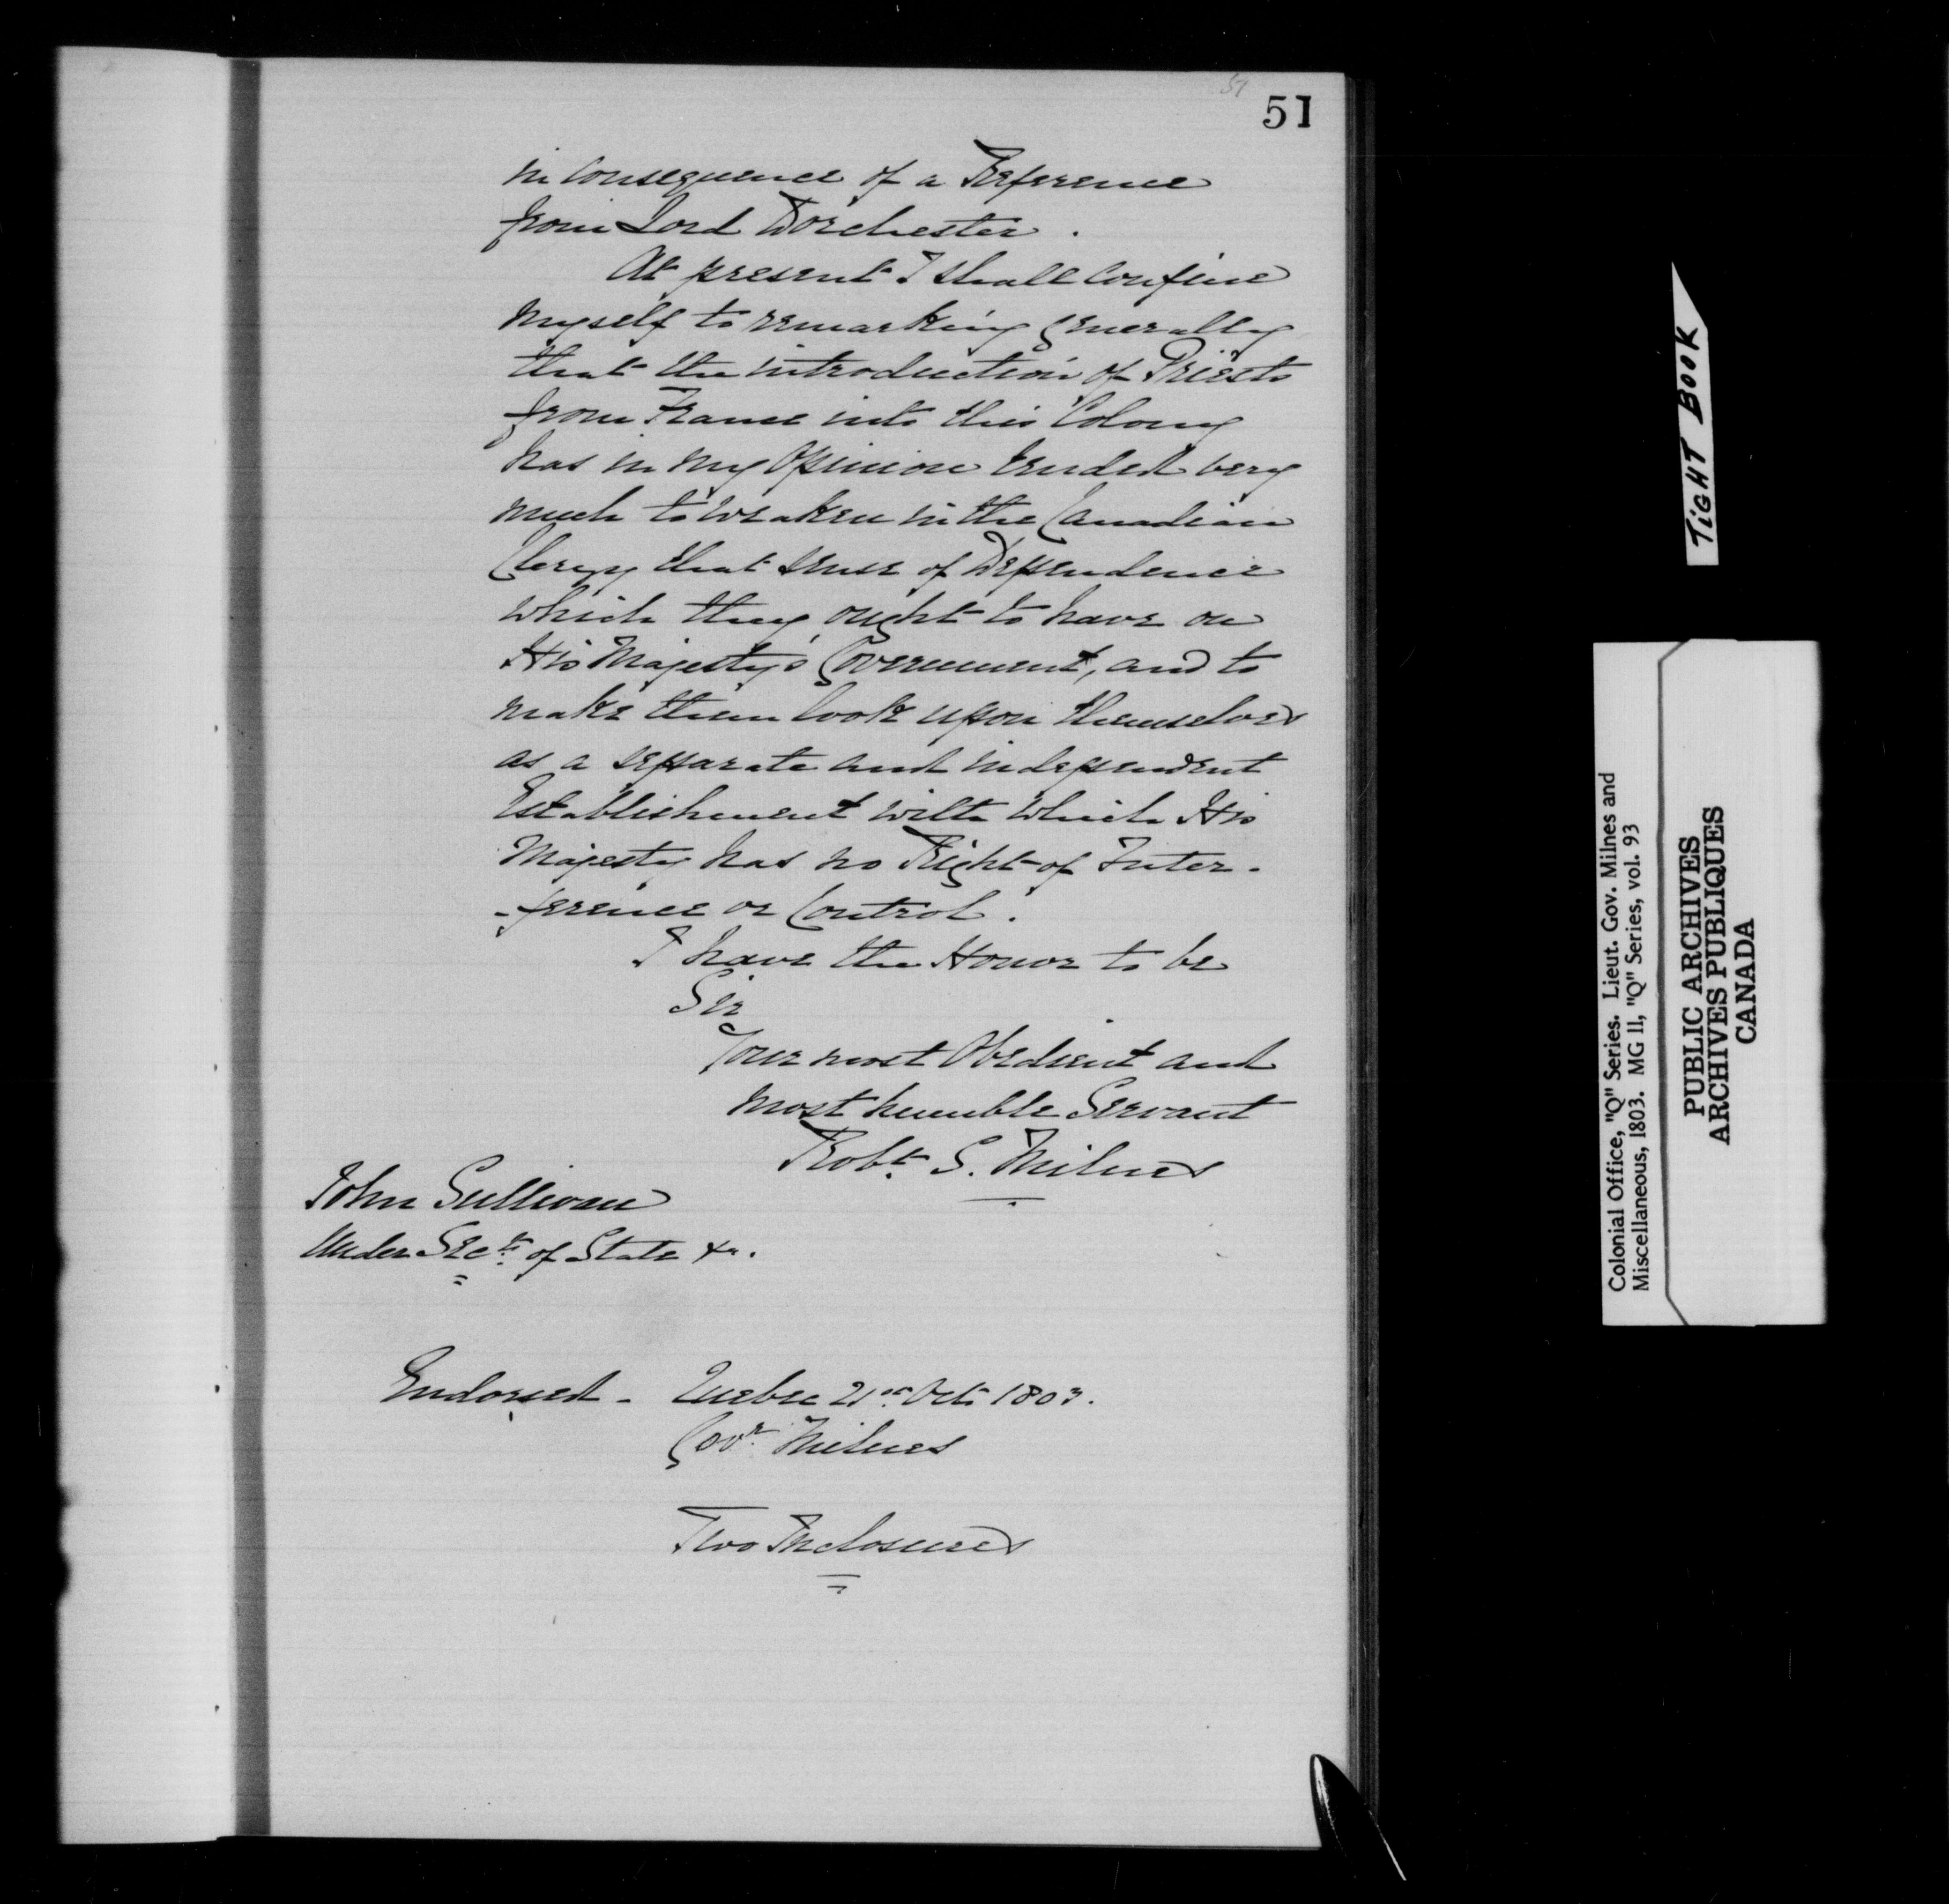 51
51
in consequence of a Reference
from Lord Dorchester.
At present I shall confine
myself to remarking generally
that the introduction of Priests
from France into this Colony
has in my Opinion tended very
much to weaken in the Canadian
Clergy that sense of Dependence
which they ought to have on
His Majesty's Government, and to
make them look upon themselves
as a separate and independent
Establishment with which His
Majesty has no Right of Inter-
-ference or Control.
I have the Honor to be
Sir
Your most Obedient and
most humble Servant
Robt. S. Milnes
John Sullivan
Under Secy. of State &c.
Endorsed - Quebec 21st. Octr 1803.
Govr. Milnes
Two Inclosures
TIGHT BOOK
Colonial Office, "Q" Series. Lieut. Gov. Milnes and
Miscellaneous, 1803. MG 11, "Q" Series, vol. 93
PUBLIC ARCHIVES
ARCHIVES PUBLIQUES
CANADA